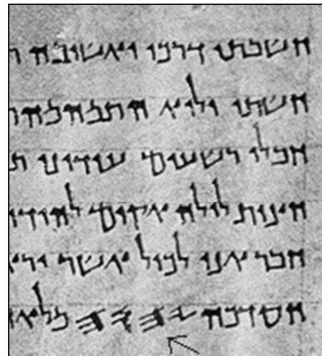 חשבתי דרכי ואשובה ר
חשתי ולוא התמהמהת
חבלי רשעים עודוני ת
חצות לילה אקום להודו
חבר אני לכול אשר ירא
חסדכה 𐤉𐤄𐤅𐤄 מלאה